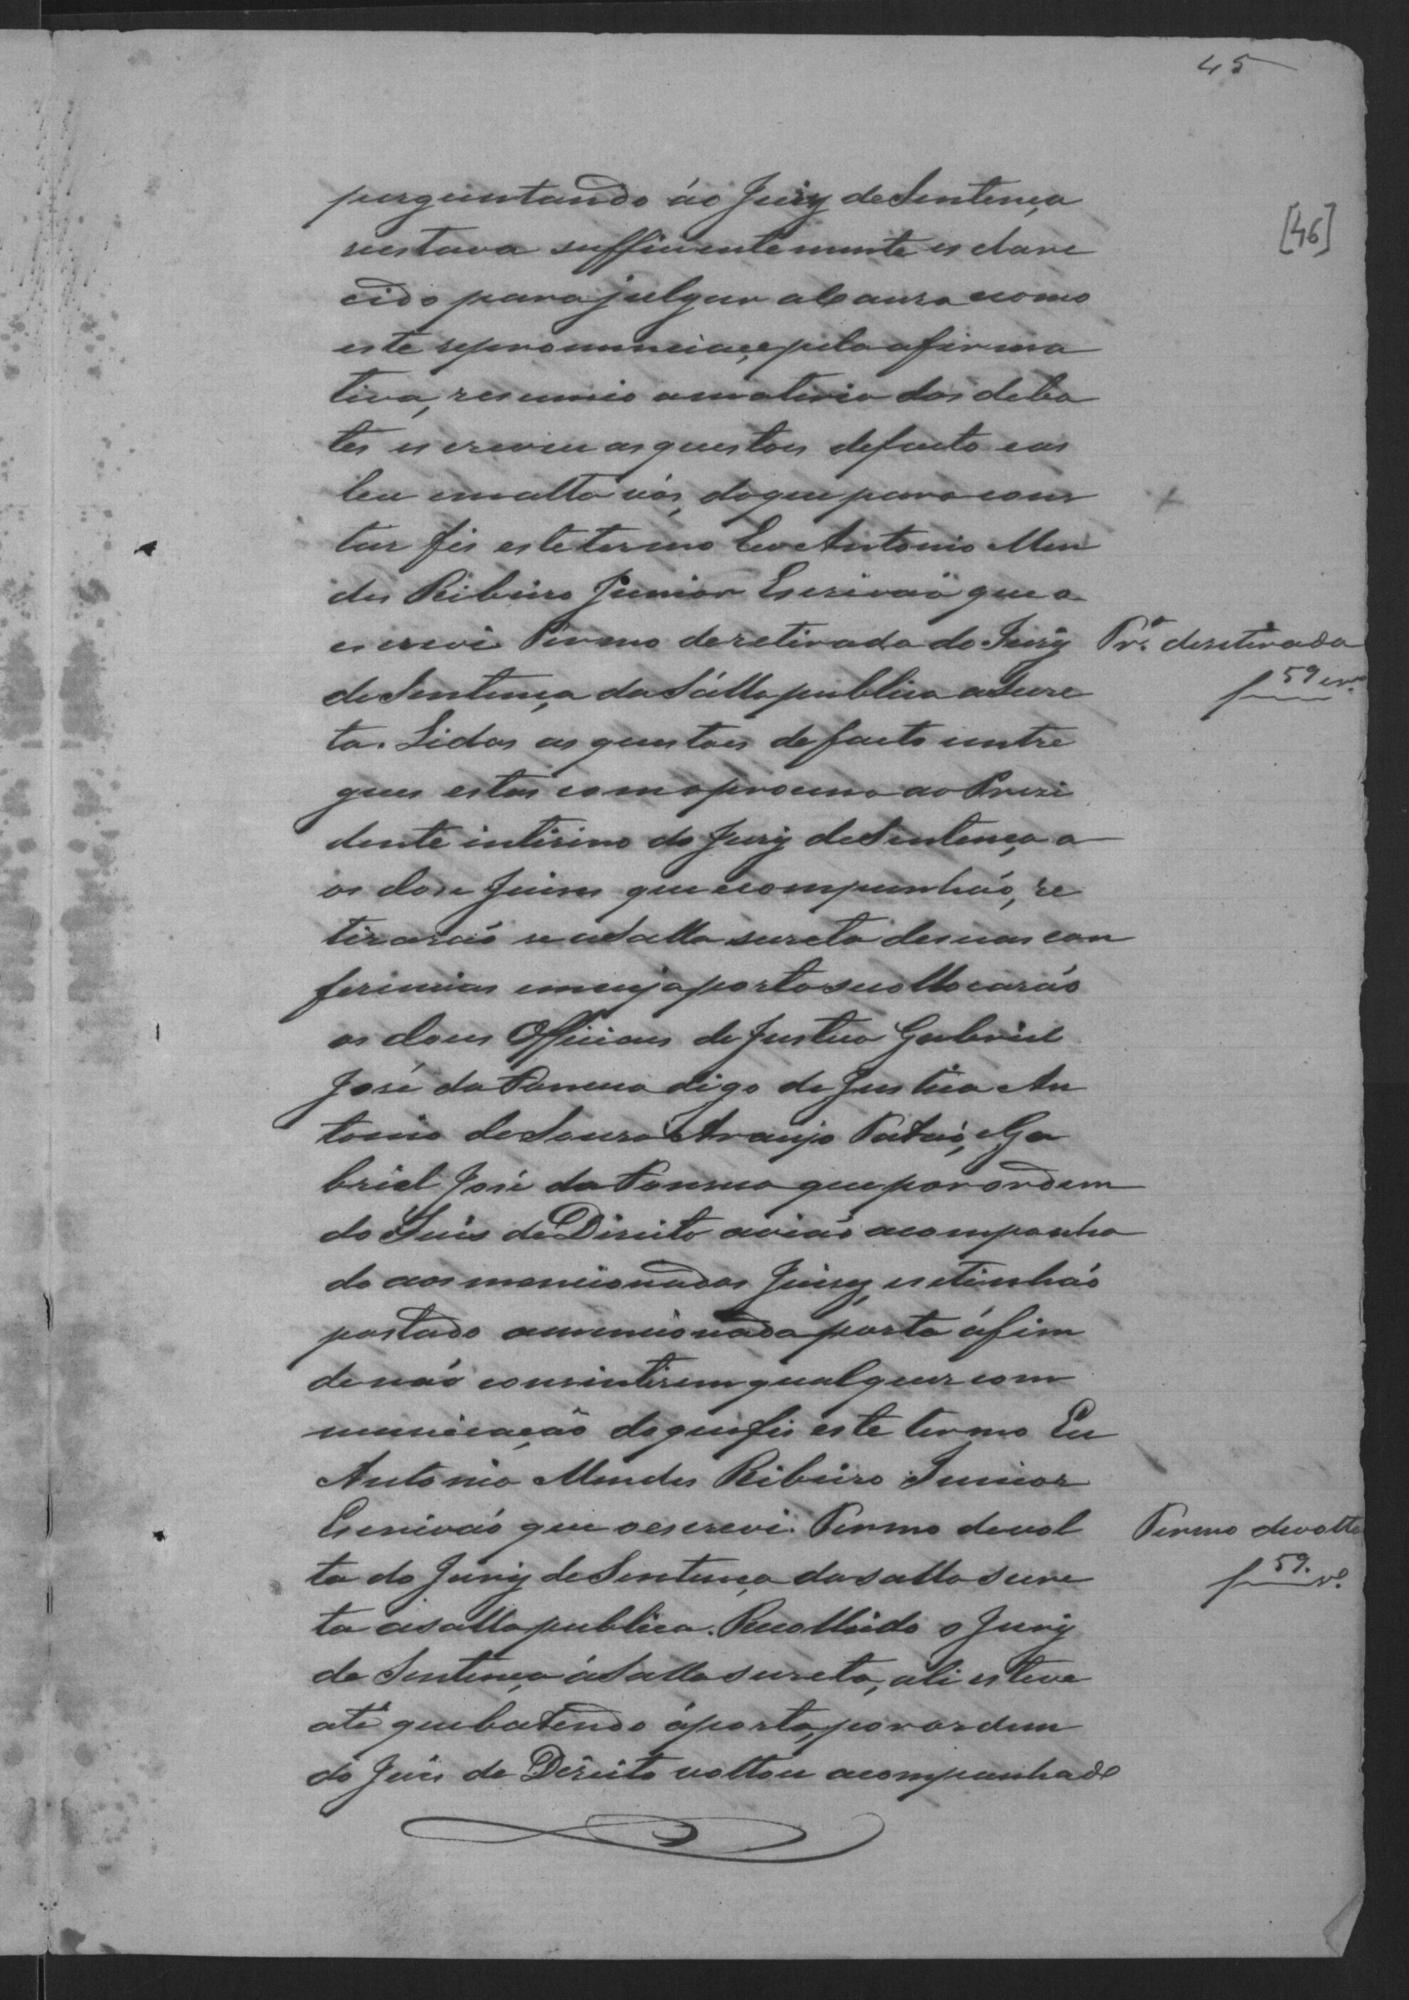 45
[46]
perguntando áo Jury de Sentença
se estava sufficientemente esclare
cido para julgar a Causa e como
este se pronunciace pela afirma
tiva, resumio a materia dos deba
tes escreveu as questoes de facto e as
leu em alta vós, do que para cons
tar fis este termo Eu Antonio Men
des Ribeiro Junior Escrivaõ que o
escrevi. Termo de retirada do Jury
de Sentença da Sálla publica a Secre
ta. Lidas as questoes de facto entre
gues estas com o processo ao Prezi
dente interino do Jury de Sentença a
os dose Juises que o compunháo, re
tiraráo se a Salla secreta de suas con
ferencias em cuja porta se collocaráo
os dous Officiaes de Justica Gabriel
José da Fonseca digo de Justica An
tonio de Souza Araujo Fatáo, e Ga
briel José da Fonseca que por ordem
do Juis de Direito aviáo acompanha
do aos mencionados Juises, e se tinháo
postado a mencionada porta áfim
de náo consintirem qualquer com
municação do que fis este termo Eu
Antonio Mendes Ribeiro Junior
Escriváo que o escrevi. Termo de vol
ta do Jury de Sentença da salla secre
ta a salla publica. Recolhido o Jury
de Sentença á Salla secreta, ali esteve
até que batendo á porta, por ordem
do Juis de Direito voltou acompanhado
Tr.º de retirada
f 59 v.
Termo de volta
f 59. v.º